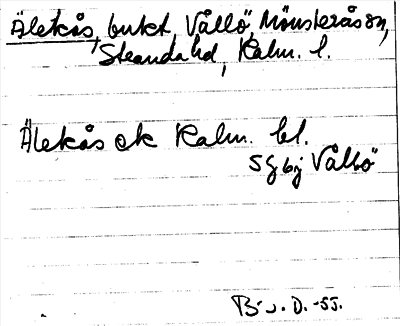 Älekås, bukt, Vållö, Mönsterås sn,
Stranda hd, Kalm. l.
Älekås ek Kalm. bl.
5 g bj Vållö
B. J. D. -55.